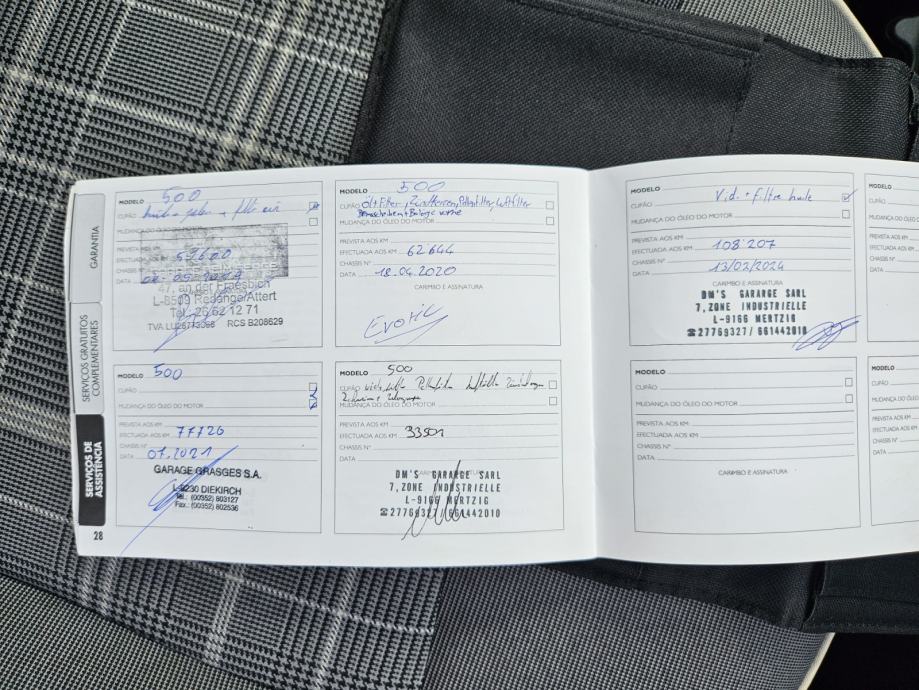 GARANTIA
SERVIÇOS GRATUITOS
COMPLEMENTARES
SERVIÇOS DE
ASSISTÊNCIA
28
MODELO 500
CUPÃO
MUDANÇA DO
PREVISTA AOS KM
EFECTUADA AOS KM 52600
CHASSIS Nº
DATA
47, an der Fraesbich
L-8509 Redange/Attert
Tel.: 26 62 12 71
TVA LU26773066 RCS B208629
MODELO 500
CUPÃO Öl + Filter, Zündkerzen, Pollenfilter, Luftfilter
Bremsscheiben + Beläge vorne
MUDANÇA DO ÓLEO DO MOTOR
PREVISTA AOS KM
EFECTUADA AOS KM 62644
CHASSIS Nº
DATA 18.04.2020
CARIMBO E ASSINATURA
MODELO 500
CUPÃO
MUDANÇA DO ÓLEO DO MOTOR
PREVISTA AOS KM
EFECTUADA AOS KM 77726
CHASSIS Nº
DATA 07.2021
GARAGE GRASGES S.A.
L-9230 DIEKIRCH
Tel.: (00352) 803127
Fax.: (00352) 802536
MODELO 500
CUPÃO
MUDANÇA DO ÓLEO DO MOTOR
PREVISTA AOS KM
EFECTUADA AOS KM 33501
CHASSIS Nº
DATA
CARIMBO E ASSINATURA
DM'S GARARGE SARL
7,ZONE INDUSTRIELLE
L-9166 MERTZIG
☎27769327/661442010
MODELO
CUPÃO Vid. + filtre huile
MUDANÇA DO ÓLEO DO MOTOR
PREVISTA AOS KM
EFECTUADA AOS KM 108 207
CHASSIS Nº
DATA 13/02/2024
CARIMBO E ASSINATURA
DM'S GARARGE SARL
7,ZONE INDUSTRIELLE
L-9166 MERTZIG
☎27769327/661442010
MODELO
CUPÃO
MUDANÇA DO ÓLEO DO MOTOR
PREVISTA AOS KM
EFECTUADA AOS KM
CHASSIS Nº
DATA
CARIMBO E ASSINATURA
MODELO
CUPÃO
MUDANÇA
PREVISTA
EFECTUADA
CHASSIS Nº
DATA
MODELO
CUPÃO
MUDANÇA
PREVISTA
EFECTUADA
CHASSIS Nº
DATA